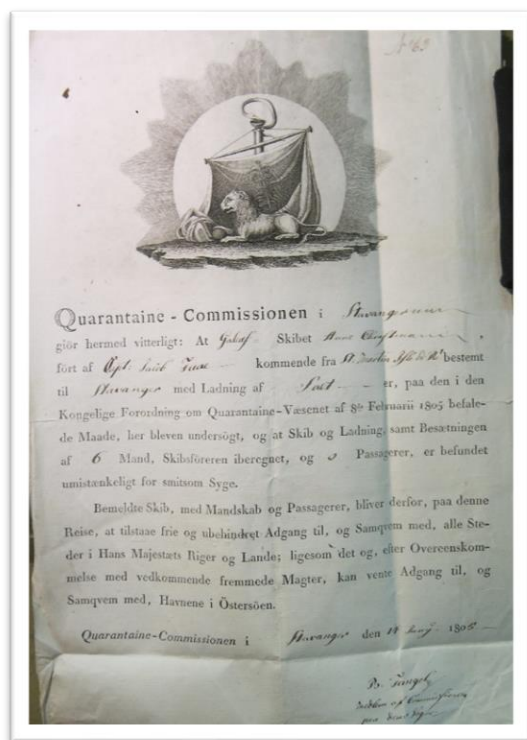 No 69
Quarantaine - Commissionen i Stavanger
giör hermed vitterligt: At Skibet
fört af Capt: Jacob kommende fra St. bestemt
til Stavanger med Ladning af er, paa den i den
Kongelige Forordning om Quarantaine-Væsenet af 8de Februarii 1805 befale-
de Maade, her bleven undersögt, og at Skib og Ladning, samt Besætningen
af 6 Mand, Skibsföreren iberegnet, og o Passagerer, er befundet
umistænkeligt for smitsom Syge.
Bemeldte Skib, med Mandskab og Passagerer, bliver derfor, paa denne
Reise, at tilstaae frie og ubehindret Adgang til, og Samqvem med, alle Ste-
der i Hans Majestæts Riger og Lande; ligesom det og, efter Overeenskom-
melse med vedkommende fremmede Magter, kan vente Adgang til, og
Samqvem med, Havnene i Östersöen.
Quarantaine-Commissionen i Stavanger den 1805